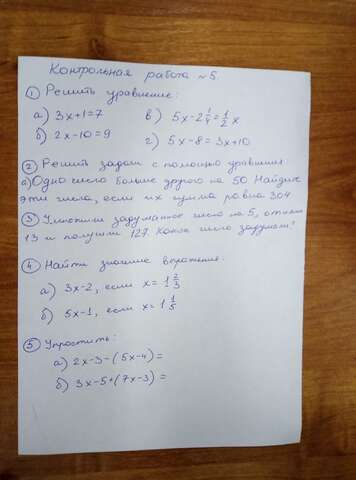 Контрольная работа ~5
① Решить уравнение:
а) 3x+1=7 в) 5x-2 1/4=1/2 x
б) 2x-10=9 г) 5x-8=3x+10
② Решить задачи с помощью уравнения
а) Одно число больше другого на 50. Найдите
эти числа, если их сумма равна 304
③ Умножили задуманное число на 5, отняли
13 и получили 127. Какое число задумали?
④ Найти значение выражения:
а) 3x-2, если x=1 2/3
б) 5x-1, если x=1 1/5
⑤ Упростить:
а) 2x-3-(5x-4)=
б) 3x-5+(7x-3)=